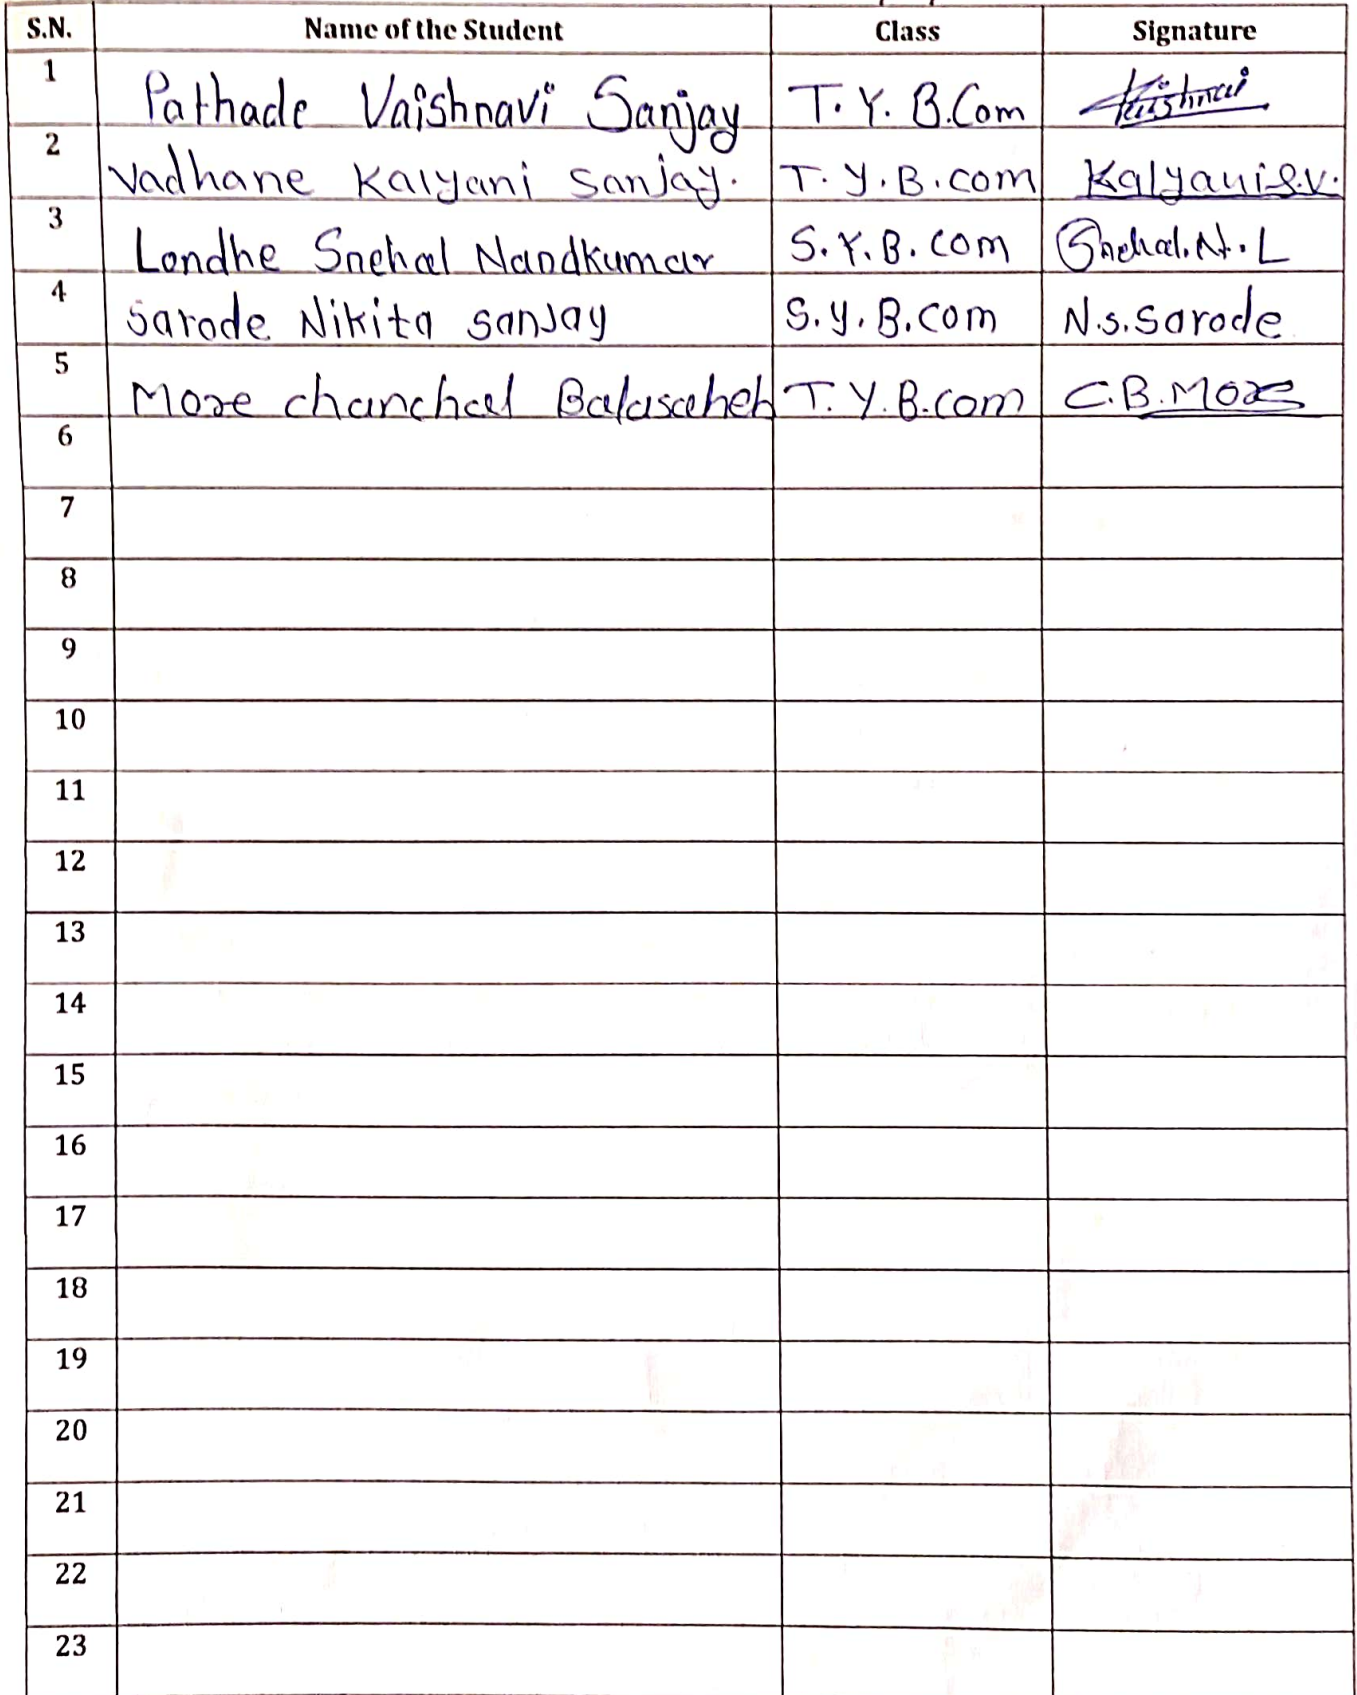 S.N. Name of the Student Class Signature
1 Pathade Vaishnavi Sanjay T. Y. B.Com Vaishnavi
2 Vadhane Kalyani Sanjay. T. Y. B. com Kalyani S.V.
3 Londhe Snehal Nandkumar S. Y. B. com Snehal. N. L
4 Sarode Nikita sanjay S. y. B. com N.s. Sarode
5 More chanchal Balasaheb T. Y. B. com C.B. More
6
7
8
9
10
11
12
13
14
15
16
17
18
19
20
21
22
23